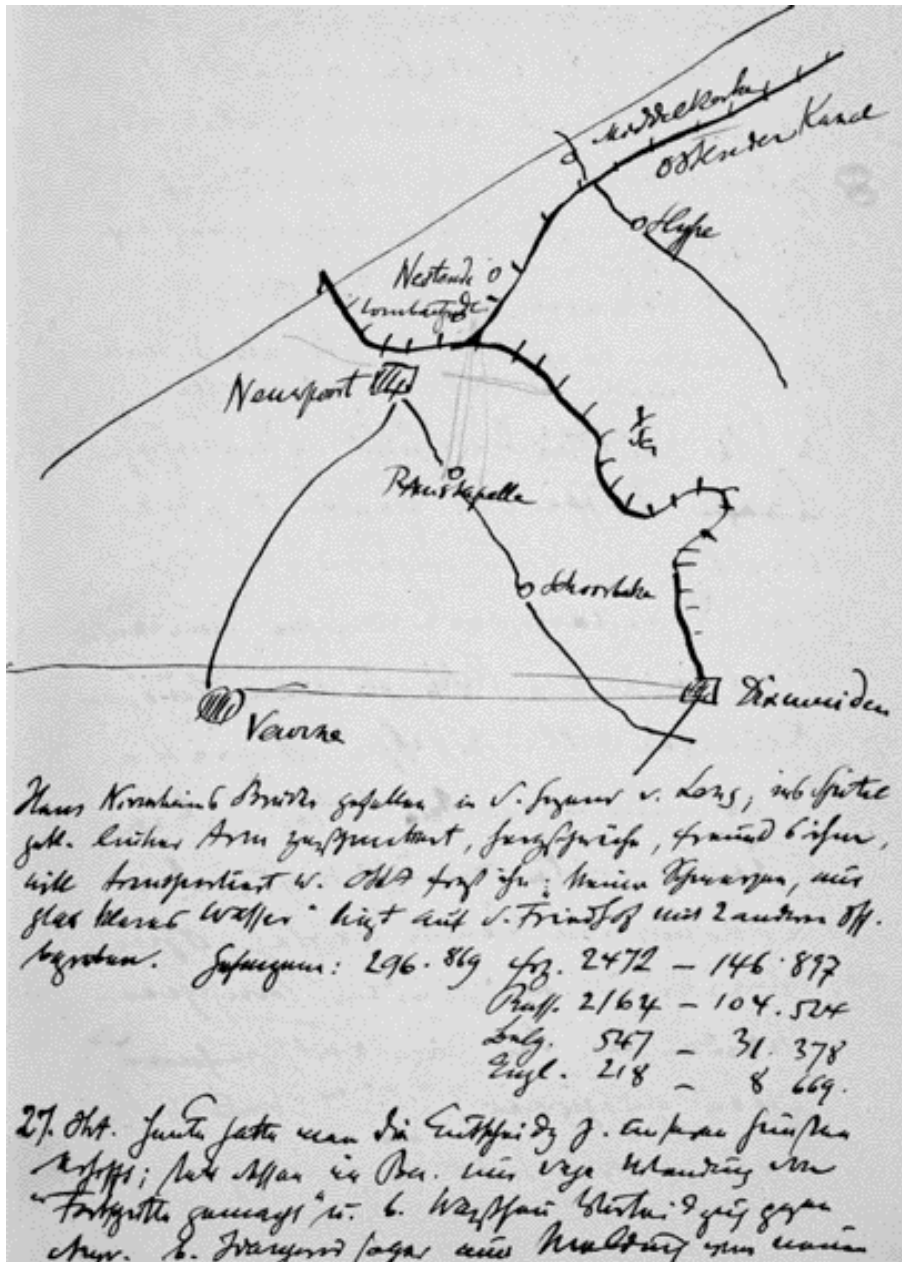 Middelkerke
Ostender Kanal
Slype
Westende
Lombartzyde
Neuwpoort
Ramskapelle
Schoorbake
Dixmuiden
Veurne
Hans Nirrnheims Bruder gefallen in d. Gegend v. Lens; ins Spital
gebr. linker Arm zerschmettert, Herzschwäche, Freund b. ihm,
will transportiert w. fragt ihn: keine Schmerzen, nur
Glas klares Wasser" liegt auf d. Friedhof mit 2 anderen Off.
begraben. Gefangene: 296.869 frz. 2472 – 146.897
Russ. 2164 – 104.524
Belg. 547 – 31.378
Engl. 218 – 8 669.
27. Okt. Heute hatte man die Entscheidg z. unseren Gunsten
erhofft; statt dessen im Ber. nur vage Wendung von
"Fortschritte gemacht" u. b. Warschau gegen
b. Iwangorod sogar nur Meldung vom neuen